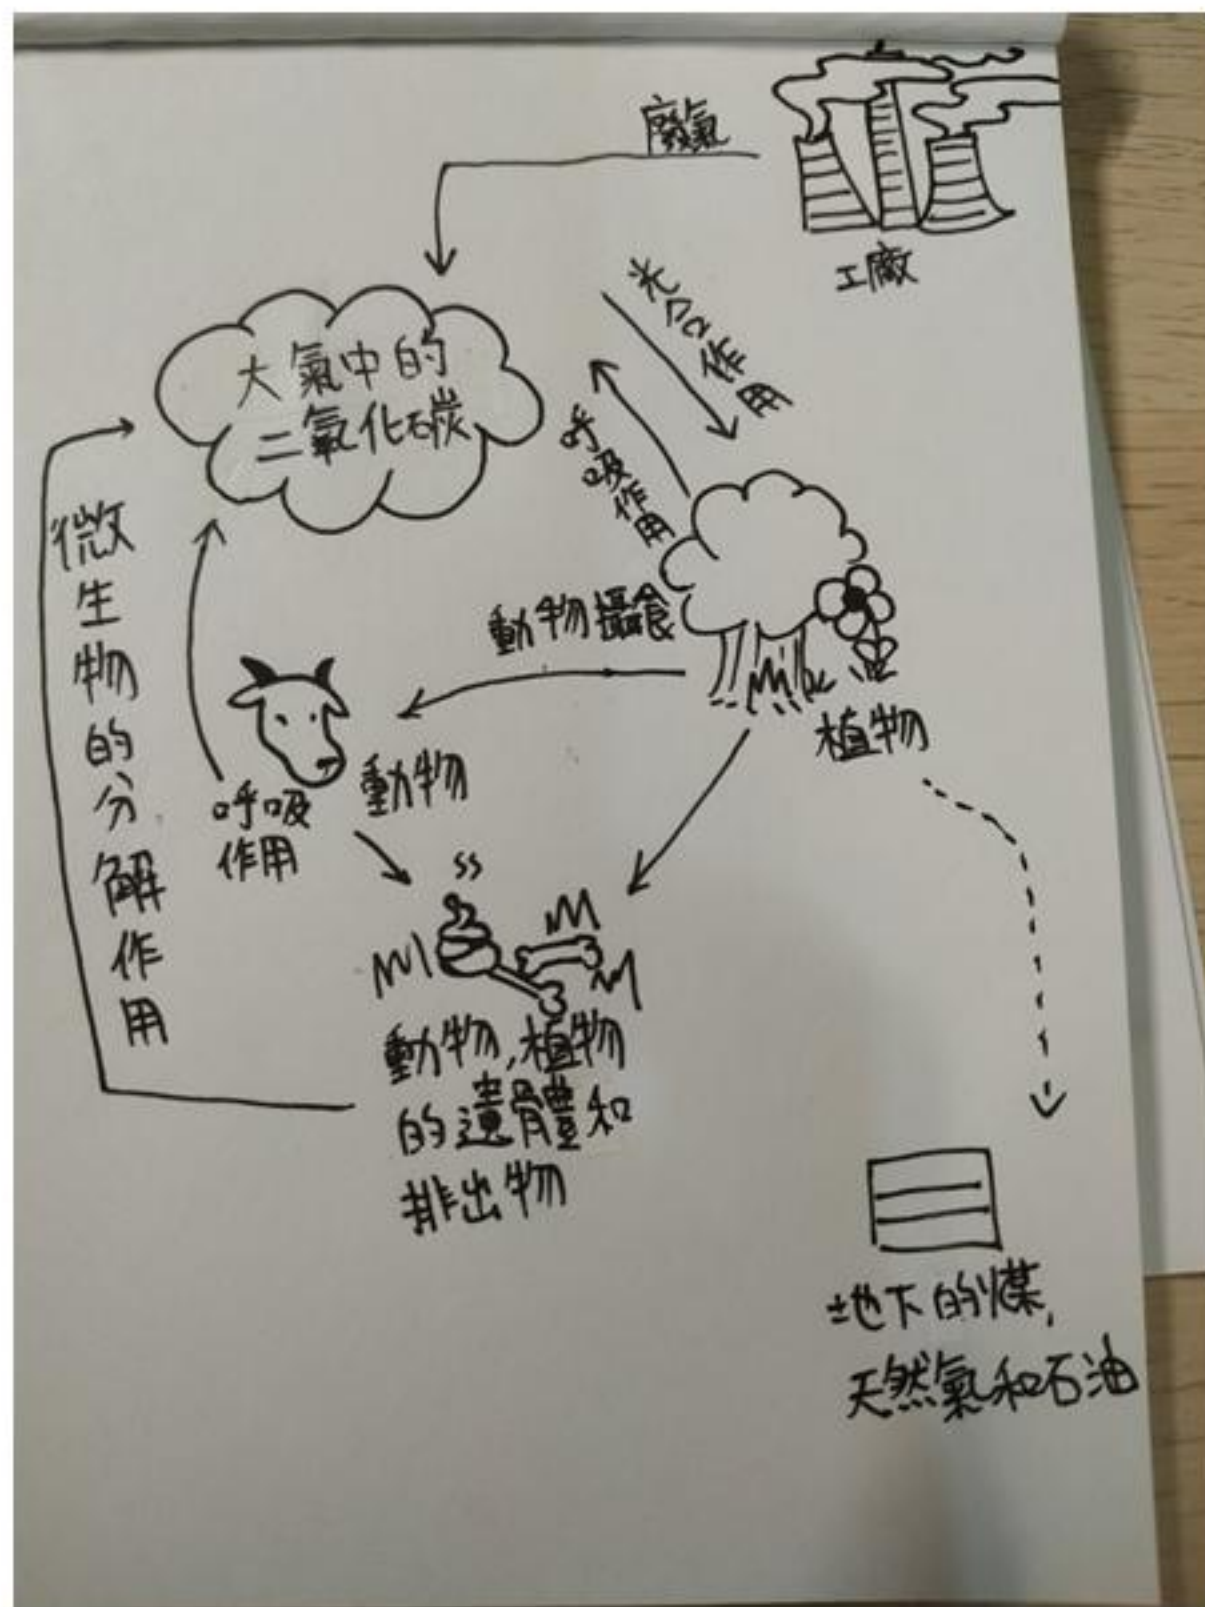 廢氣
工廠
光合作用
大氣中的
二氧化碳
呼吸作用
微生物的分解作用
動物攝食
植物
動物
呼吸
作用
ss
動物,植物
的遺體和
排出物
地下的煤,
天然氣和石油